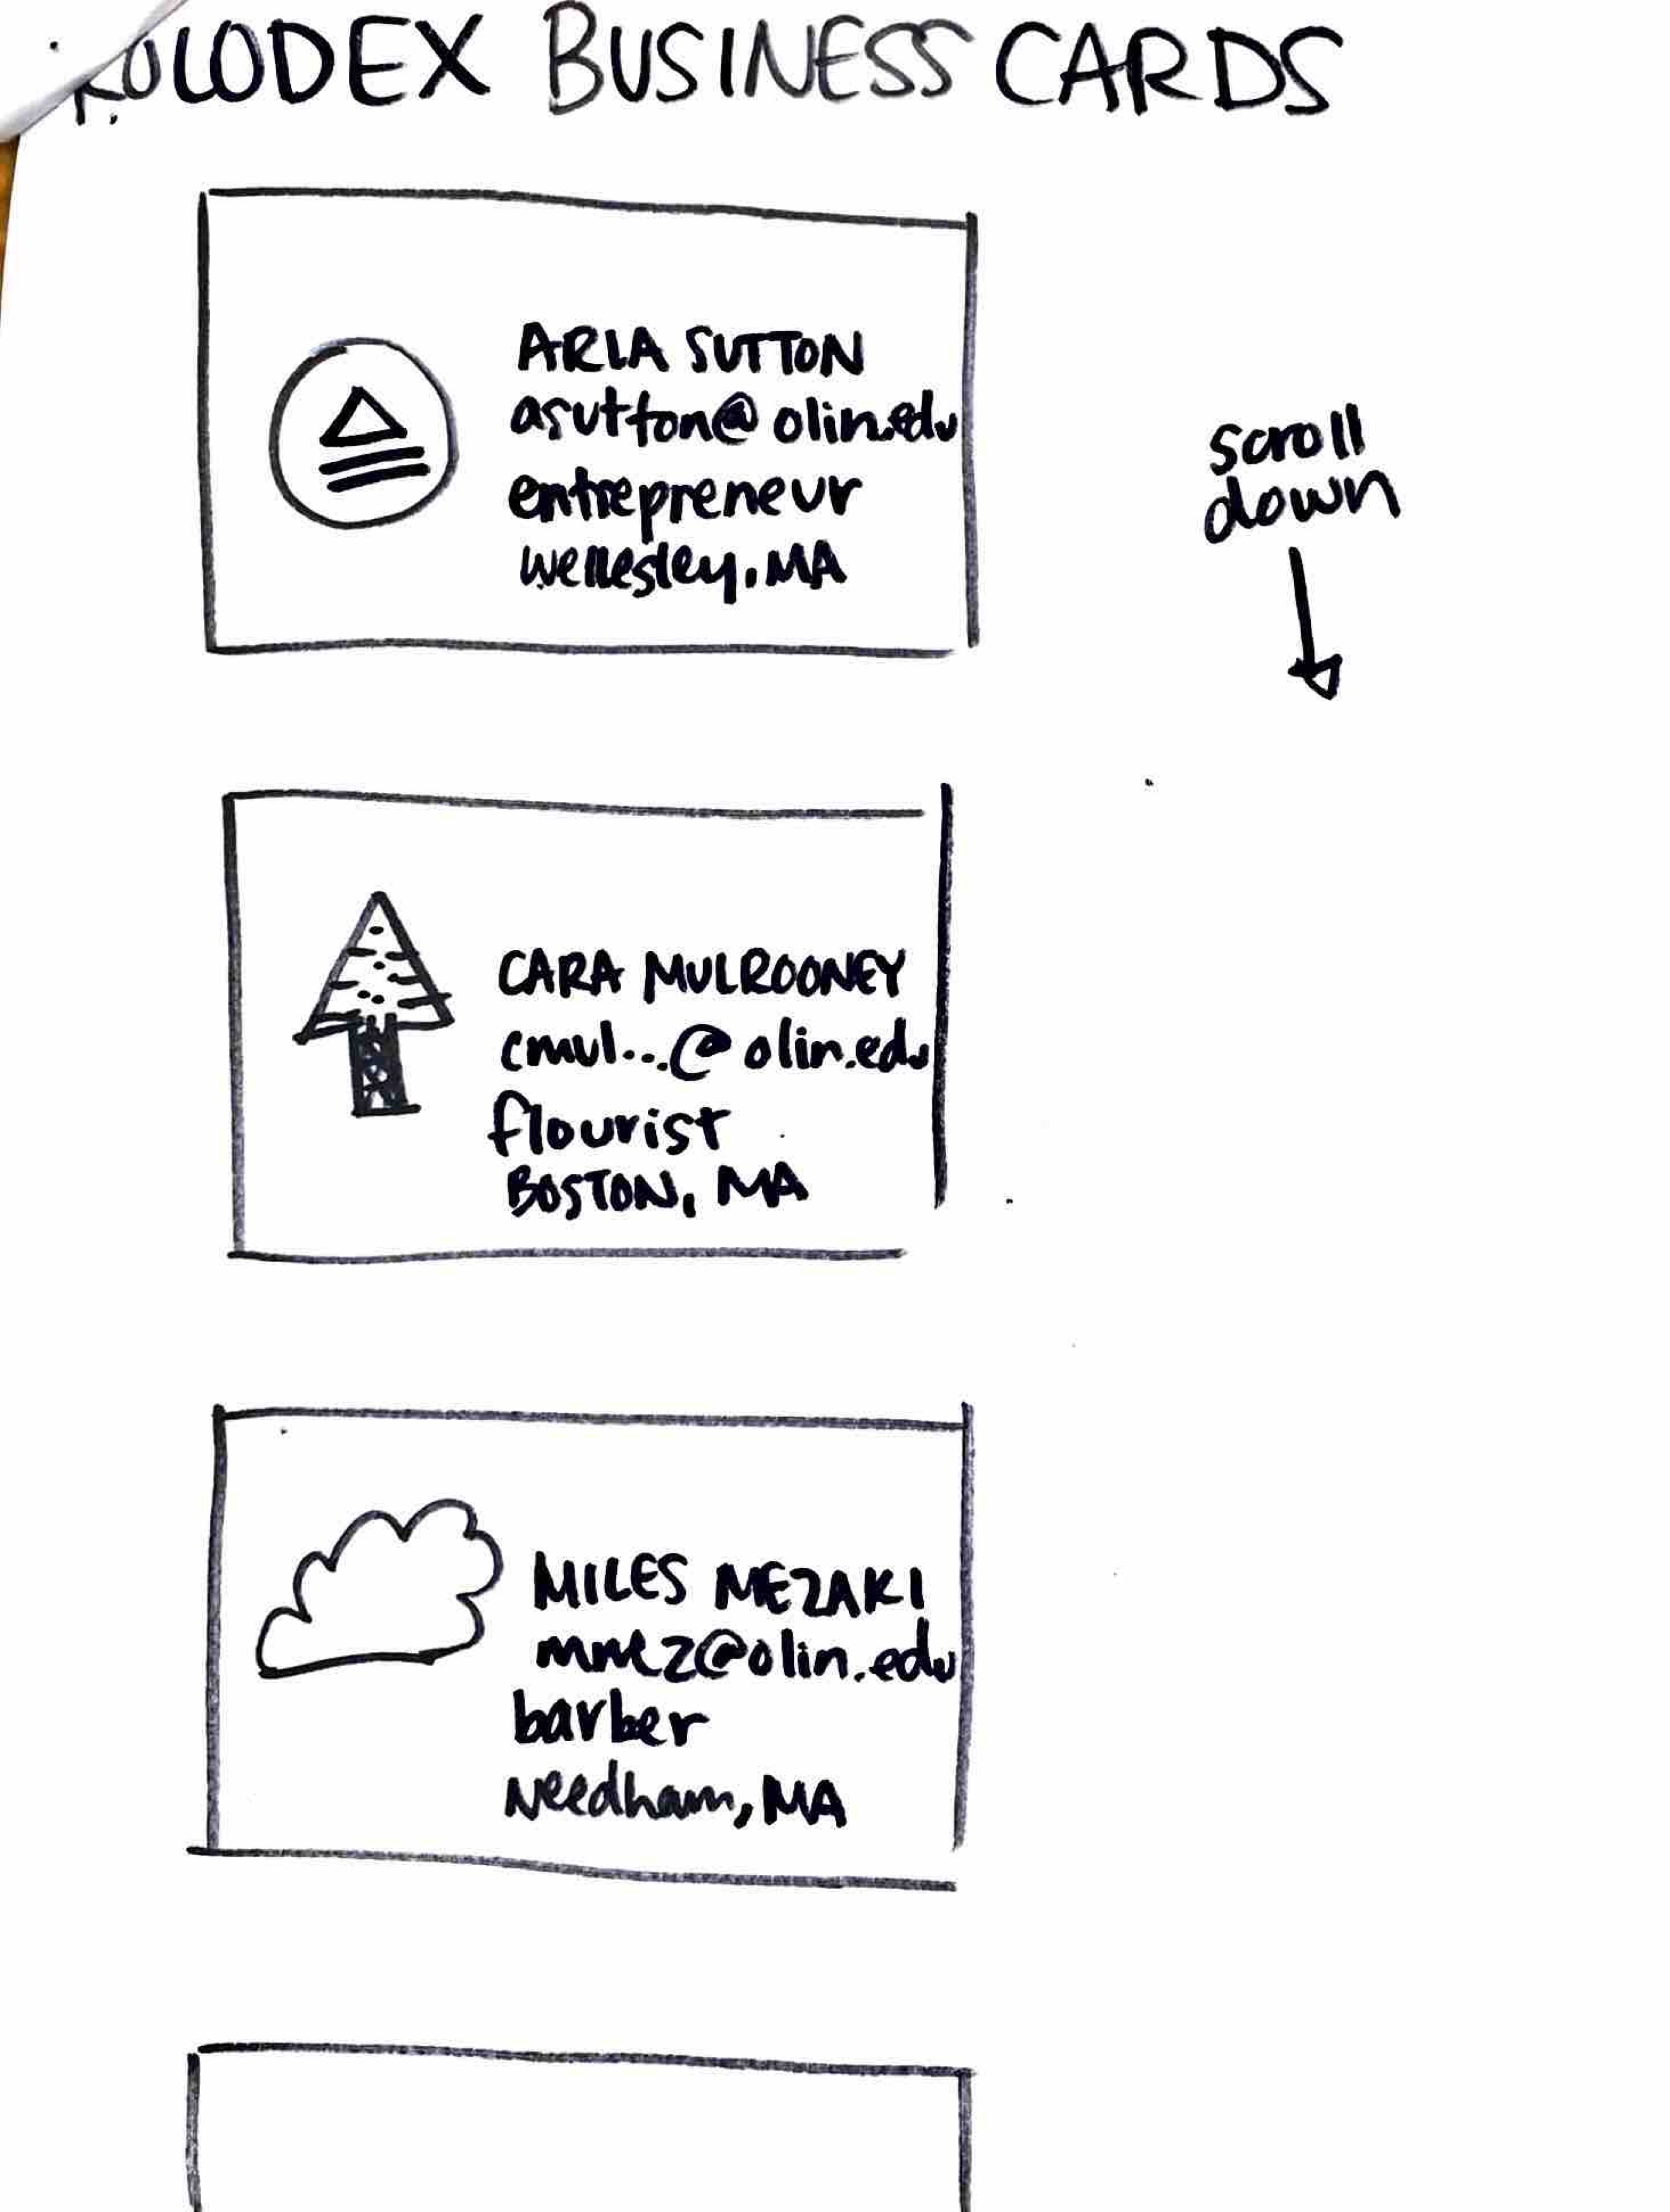 ROLODEX BUSINESS CARDS
ARLA SUTTON
asutton@olin.edu
entrepreneur
wellesley, MA
scroll
down
CARA MULROONEY
cmul...@olin.edu
flourist
BOSTON, MA
MILES MEZAKI
mmez@olin.edu
barber
Needham, MA